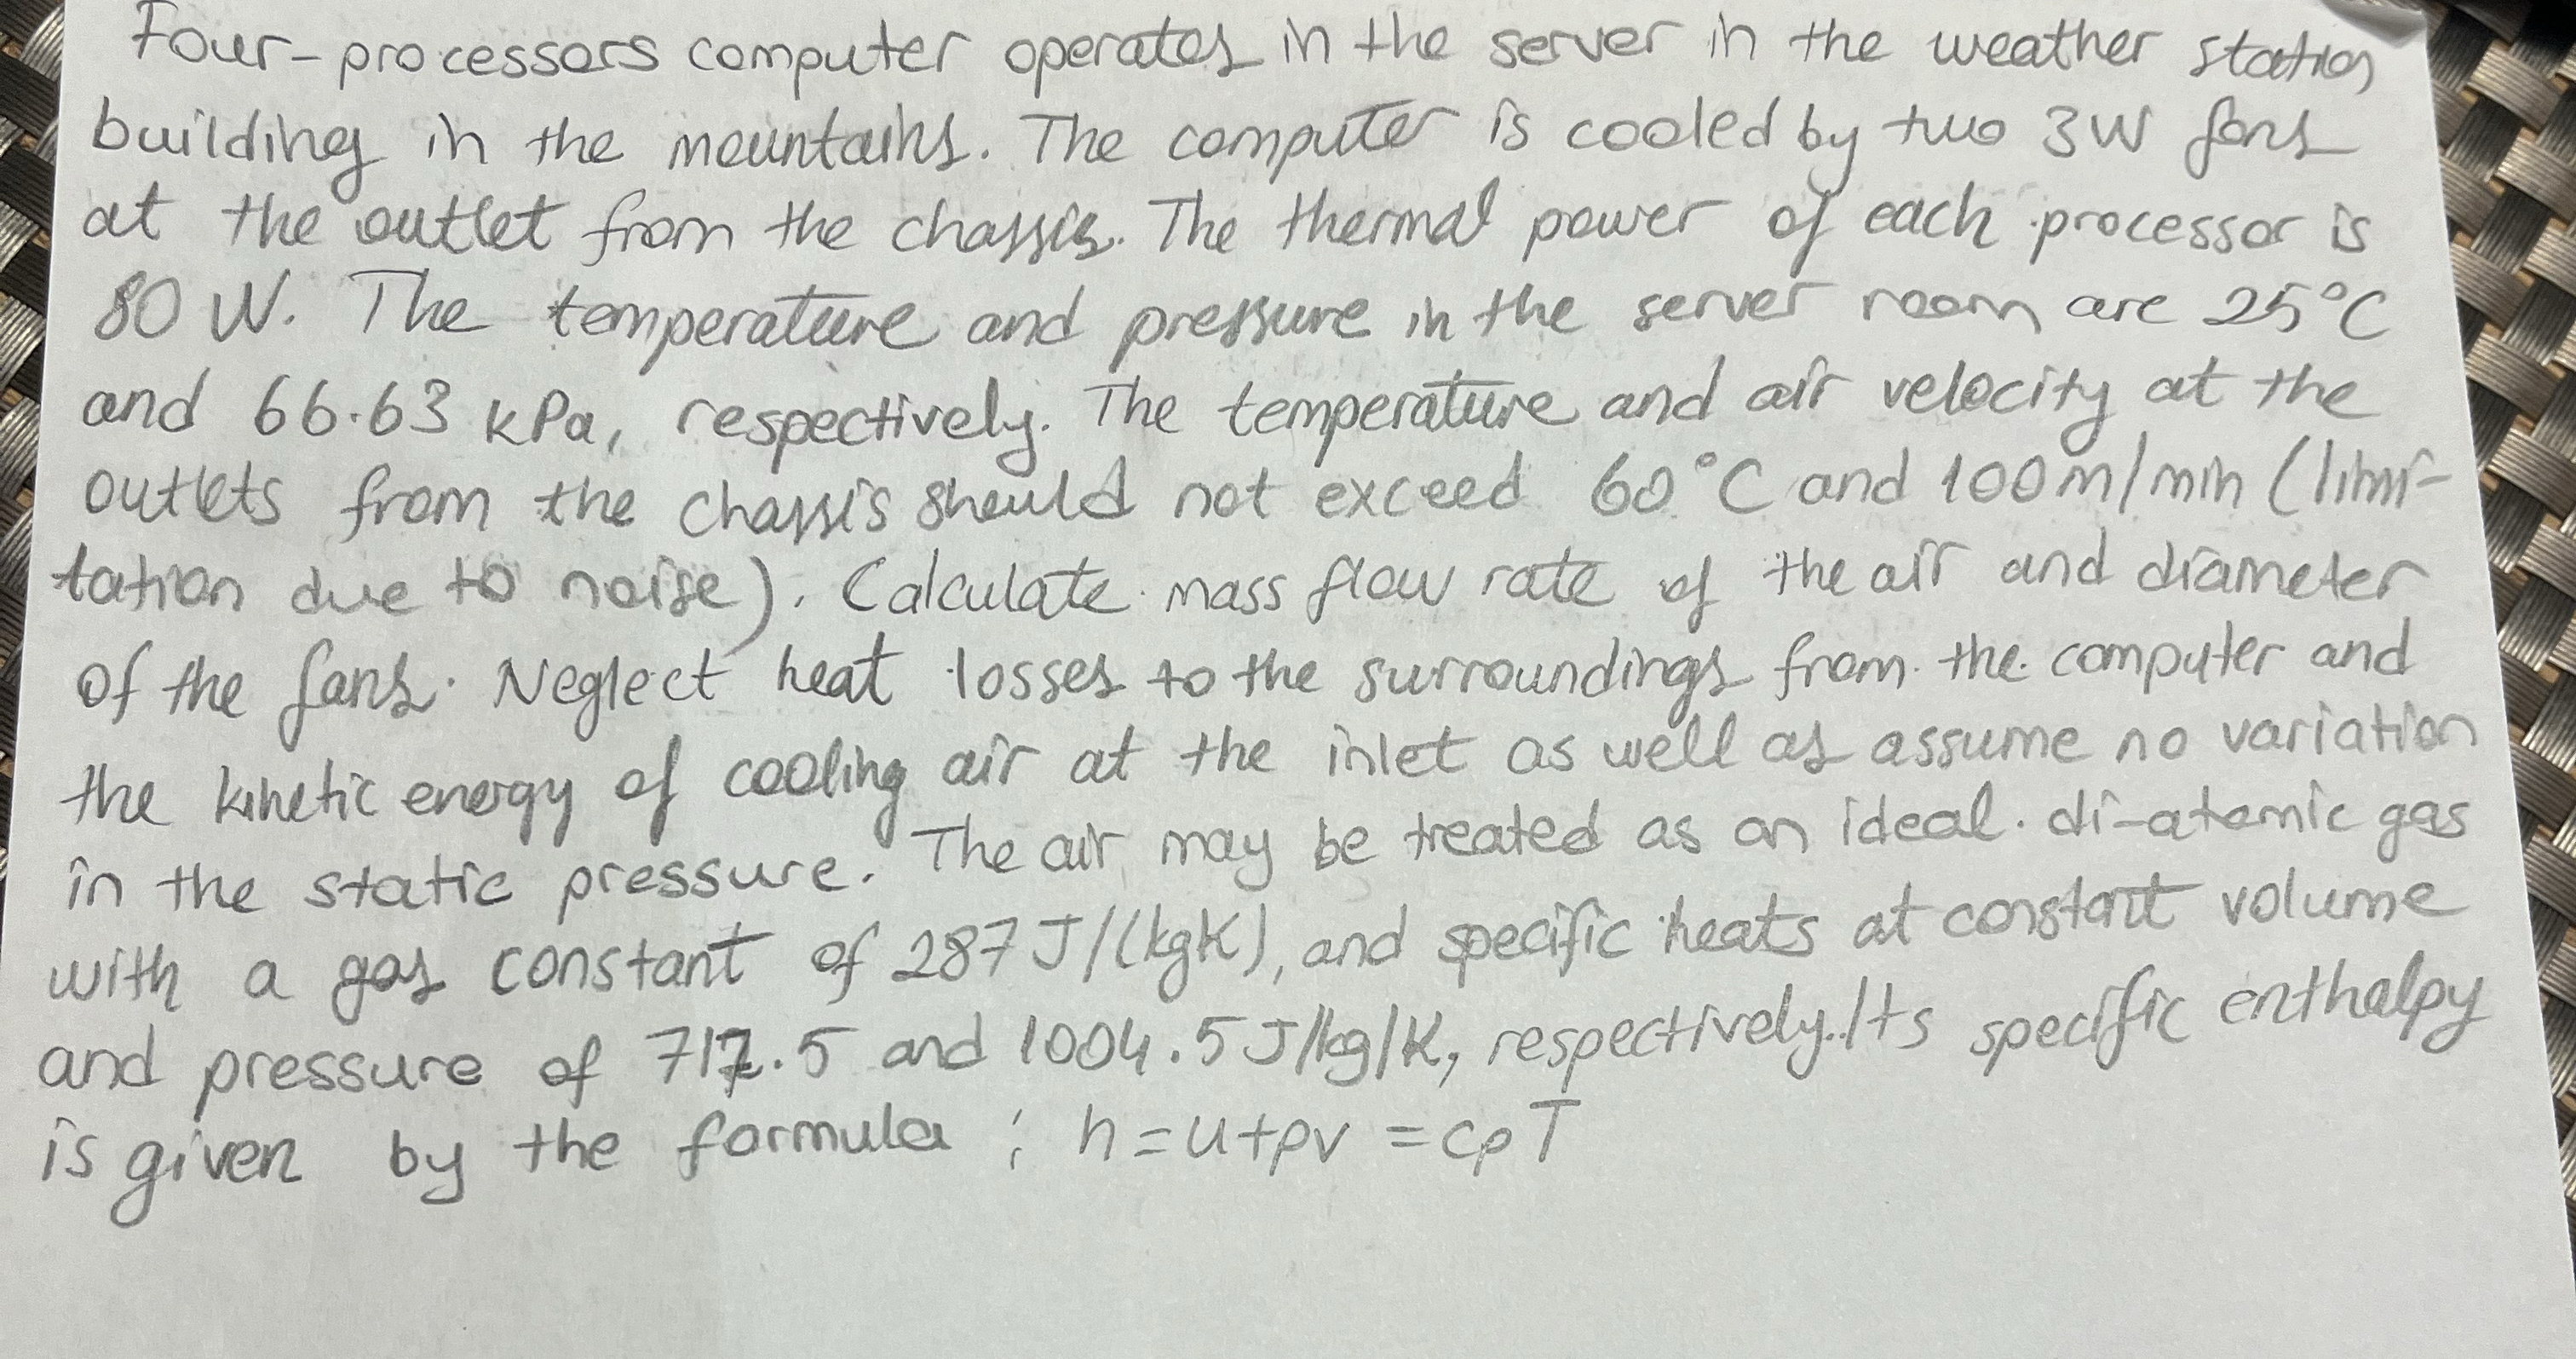 Four-processors computer operates in the server in the weather station
building in the mountains. The computer is cooled by two 3W fans
at the outlet from the chassis. The thermal power of each processor is
80 W. The temperature and pressure in the server room are 25°C
and 66.63 kPa, respectively. The temperature and air velocity at the
outlets from the chassis should not exceed 60°C and 100m/min (limi-
tation due to noise). Calculate mass flow rate of the air and diameter
of the fans. Neglect heat losses to the surroundings from the computer and
the kinetic energy of cooling air at the inlet as well as assume no variation
in the static pressure. The air may be treated as an ideal di-atomic gas
with a gas constant of 287 J/(kgK), and specific heats at constant volume
and pressure of 717.5 and 1004.5 J/kg/K, respectively. Its specific enthalpy
is given by the formula : h = u+pv = cpT